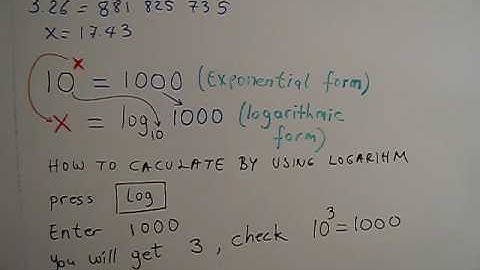 3.26 = 881 825 735
x = 17.43
10^x = 1000 (Exponential form)
x = log₁₀ 1000 (logarithmic
form)
HOW TO CACULATE BY USING LOGARIHM
press Log
Enter 1000
You will get 3, check 10³ = 1000